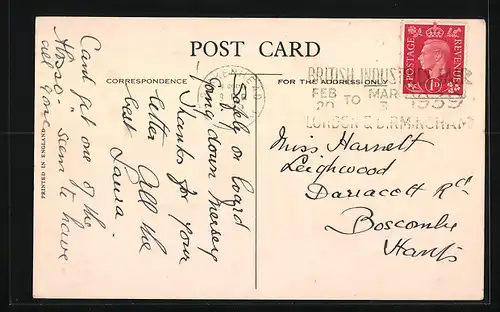 POST CARD
CORRESPONDENCE
FOR THE ADDRESS ONLY
POSTAGE
REVENUE
1D
BRITISH INDUSTRIES
FEB TO MAR
20 3 1939
LONDON & BIRMINGHAM
Safely on board
going down Mersey
Thanks for your
letter All the
best Laura.
Cant get one of the
- seem to have
all gone
Miss Harnett
Leighwood
Darracott Rd
Boscombe
Hants
PRINTED IN ENGLAND